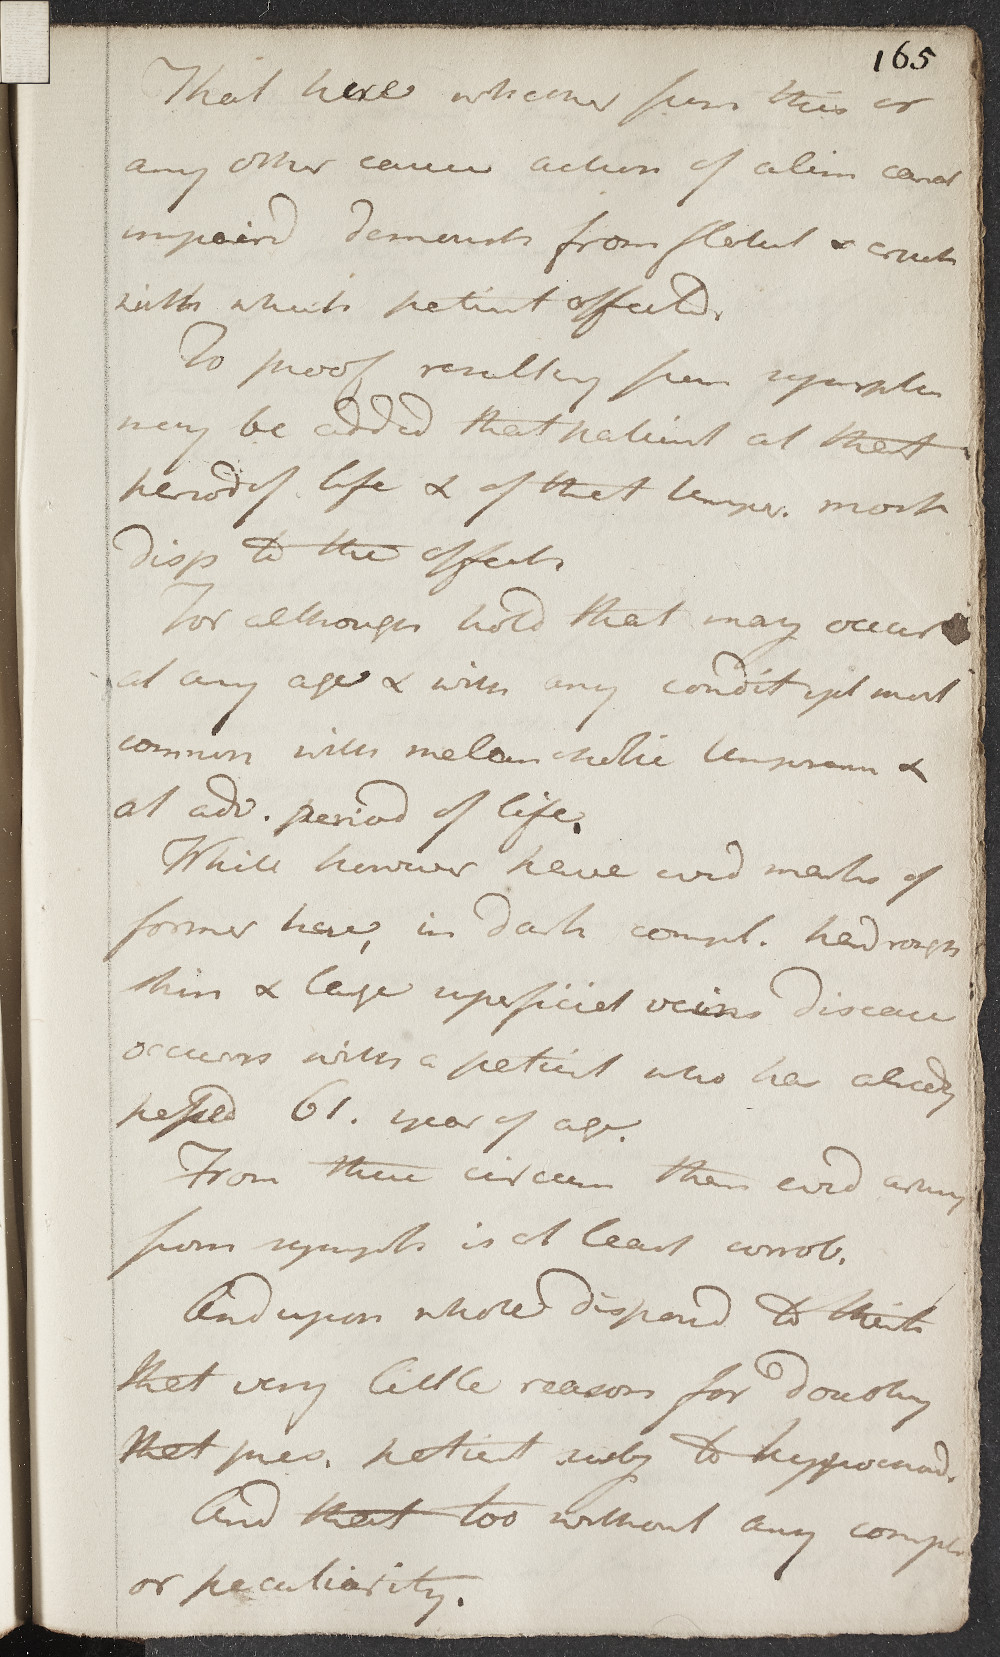 165
That here whether from this or
any other cause action of alim canal
impaird demonstr from flatul & eruct
with which patient affected.
To proof resulting from symptm
may be added that patient at that
period of life & of that temper. most
disp to the effects
For although hold that may occur
at any age & with any condit yet most
common with melancholic temperam &
at adv. period of life.
While however have evid marks of
former here, in dark compl. hard rough
skin & large superficial veins disease
occurrs with a patient who has already
passed 61. year of age.
From these circum then evid arising
from sympt is at least corrob.
And upon whole disposed to think
that very little reason for doubting
that pres. patient subj to hypochond.
And that too without any compl
or peculiarity.